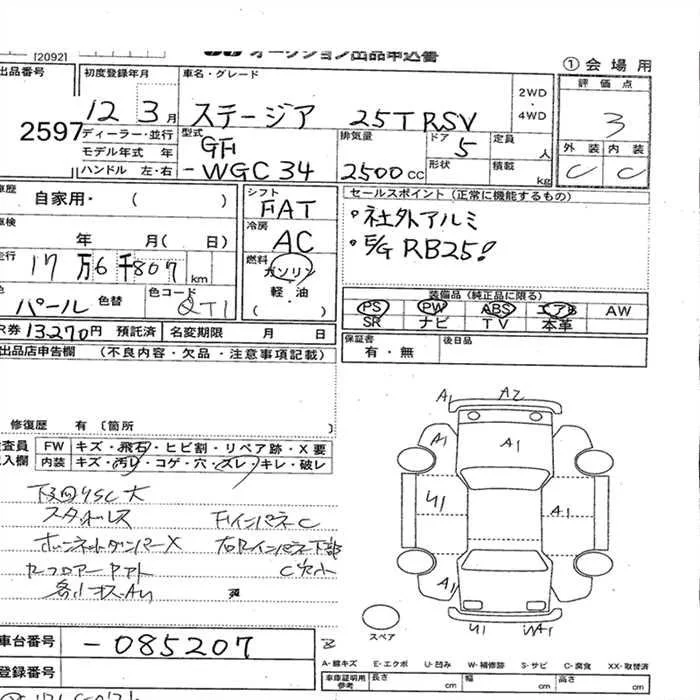 [2092]
オークション出品申込書
① 会場用
出品番号
2597
初度登録年月
12 3月
車名・グレード
ステージア 25T RSV
2WD
・
4WD
評価点
3
外装 内装
C C
ディーラー・並行
モデル年式 年
ハンドル 左・右
型式
GH
-WGC34
排気量
2500cc
ドア
5
形状
定員
人
積載
kg
車歴
自家用・( )
車検
年 月( 日)
走行
17万6千807km
色
パール
色替
色コード
QT1
シフト
FAT
冷房
AC
燃料
ガソリン
軽・油
( )
セールスポイント(正常に機能するもの)
・社外アルミ
・E/G RB25!
装備品(純正品に限る)
PS PW ABS エアB AW
SR ナビ TV 本革
保証書
有・無
後日品
R券 13270円 預託済
名変期限 月 日
出品店申告欄 (不良内容・欠品・注意事項記載)
修復歴 有 〔箇所 〕
検査員
記入欄
FW キズ・飛石・ヒビ割・リペア跡・X要
内装 キズ・汚れ・コゲ・穴・スレ・キレ・破レ
スタッドレス
ボンネットダンパーX
A1 A2
A1 A1
U1 A1
A1
U1 WA1
スペア
車台番号
-085207
登録番号
A-線キズ E-エクボ U-凹み W-補修跡 S-サビ C-腐食 XX-取替済
車庫証明用
参考
長さ cm
幅 cm
高さ cm